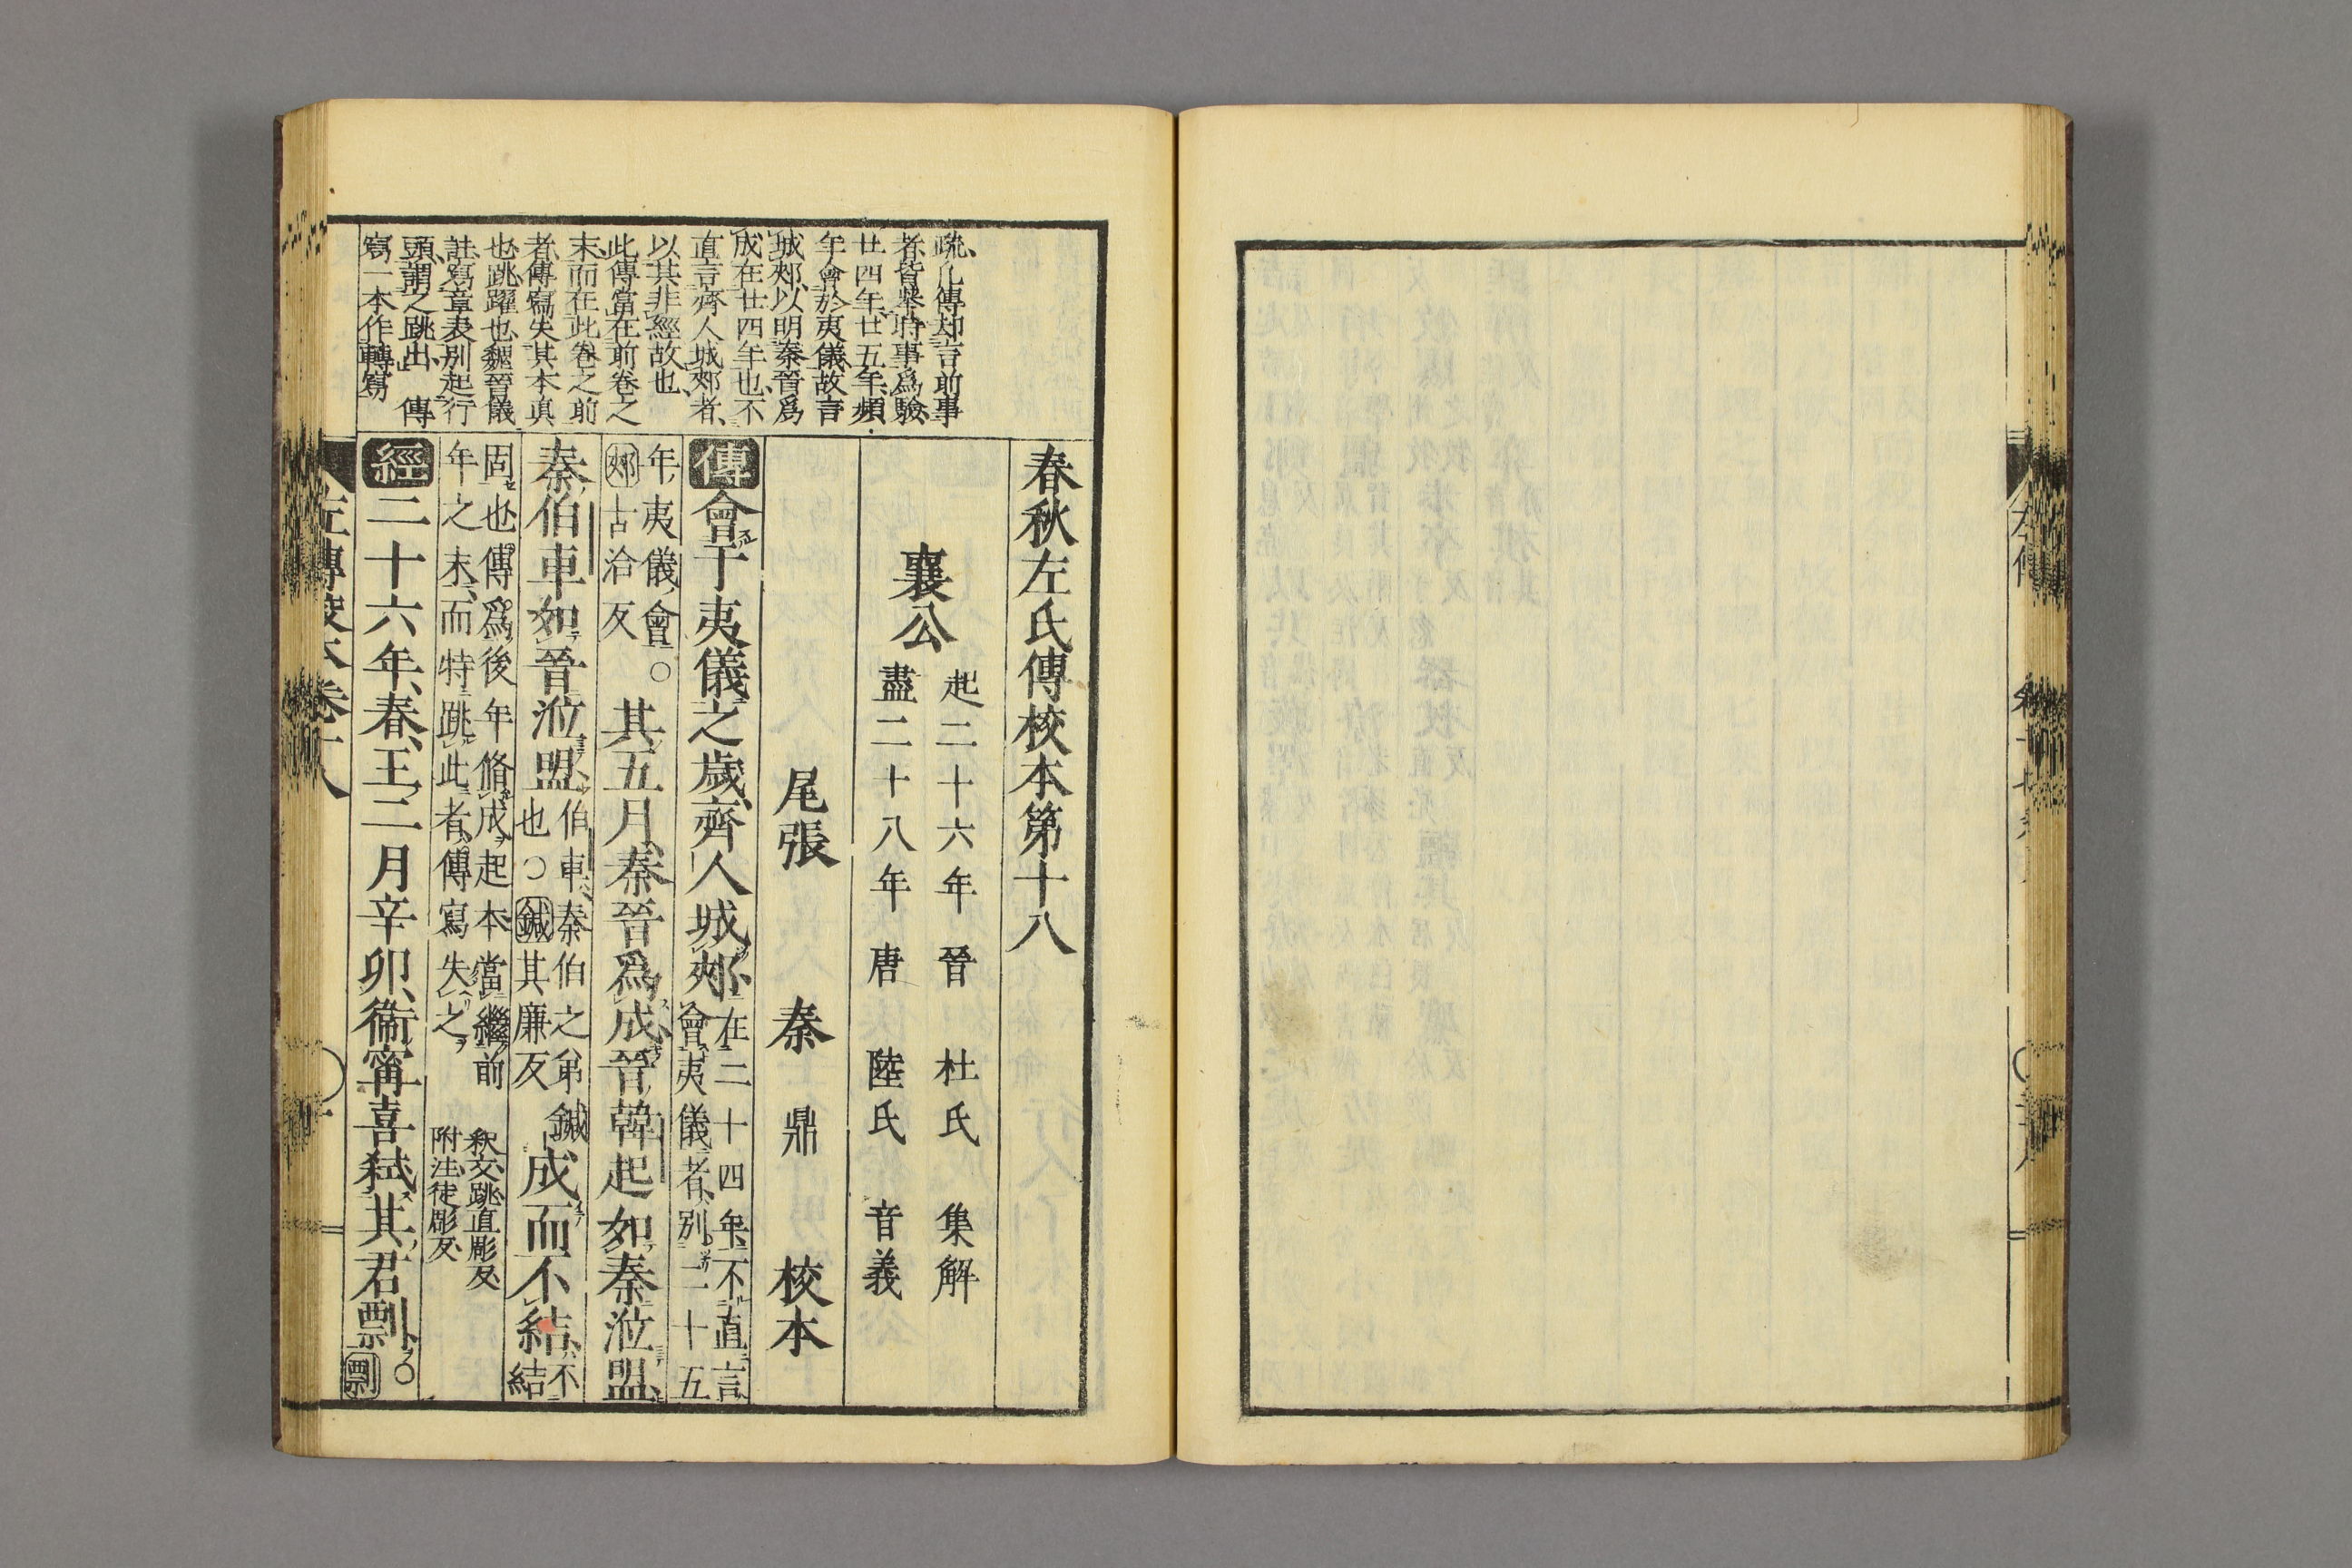 春秋左氏傳校本第十八
襄公
起二十六年 晉 杜氏 集解
盡二十八年 唐 陸氏 音義
尾張 秦 鼎 校本
傳會于夷儀之歲、齊人城郟、
在二十四年、不直言
會夷儀者、別二十五
年夷儀會○
郟古洽反
其五月、秦晉爲成、晉韓起如秦涖盟、
秦伯車如晉涖盟、
伯車、秦伯之弟鍼
也○鍼其廉反
成而不結、
不
結
固也、傳爲後年脩成起本、當繼前
年之末、而特跳此者、傳寫失之、
釈文、跳直彫反、
附注、徒彫反、
經二十六年、春、王二月辛卯、衞甯喜弒其君剽、
○
剽
疏、凡傳却言前事
者、皆舉時事爲驗、
廿四年、廿五年、頻
年會於夷儀、故言
城郟、以明秦晉爲
成在廿四年也、不
直言齊人城郟者、
以其非經故也、
此傳當在前卷之
末、而在此卷之前
者、傳寫失其本眞
也、跳躍也、魏晉儀
註、寫章表別起行
頭、謂之跳出、 傳
寫一本作轉寫
左傳校本 卷十八